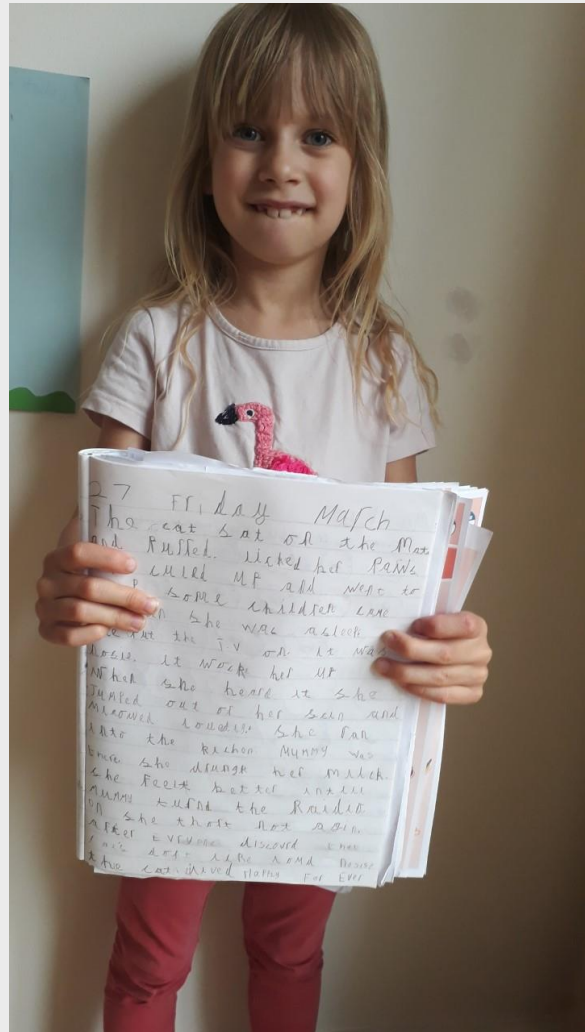 27 Friday March
The cat sat on the Mat
and Puffed. licked her Paws
culed up and went to
some children came
she was asleep.
put the T.V on it was
nosie. it wock her up
When she heard it she
Jumped out of her scin and
miaowed loudise she ran
into the kichon Mummy was
there she drangk her milck.
she Feelt better intill
Mummy turnd the Raidio
on she thort not agin.
after Evryone discoverd that
cat's dont like loud
the cat lived Happy For Ever